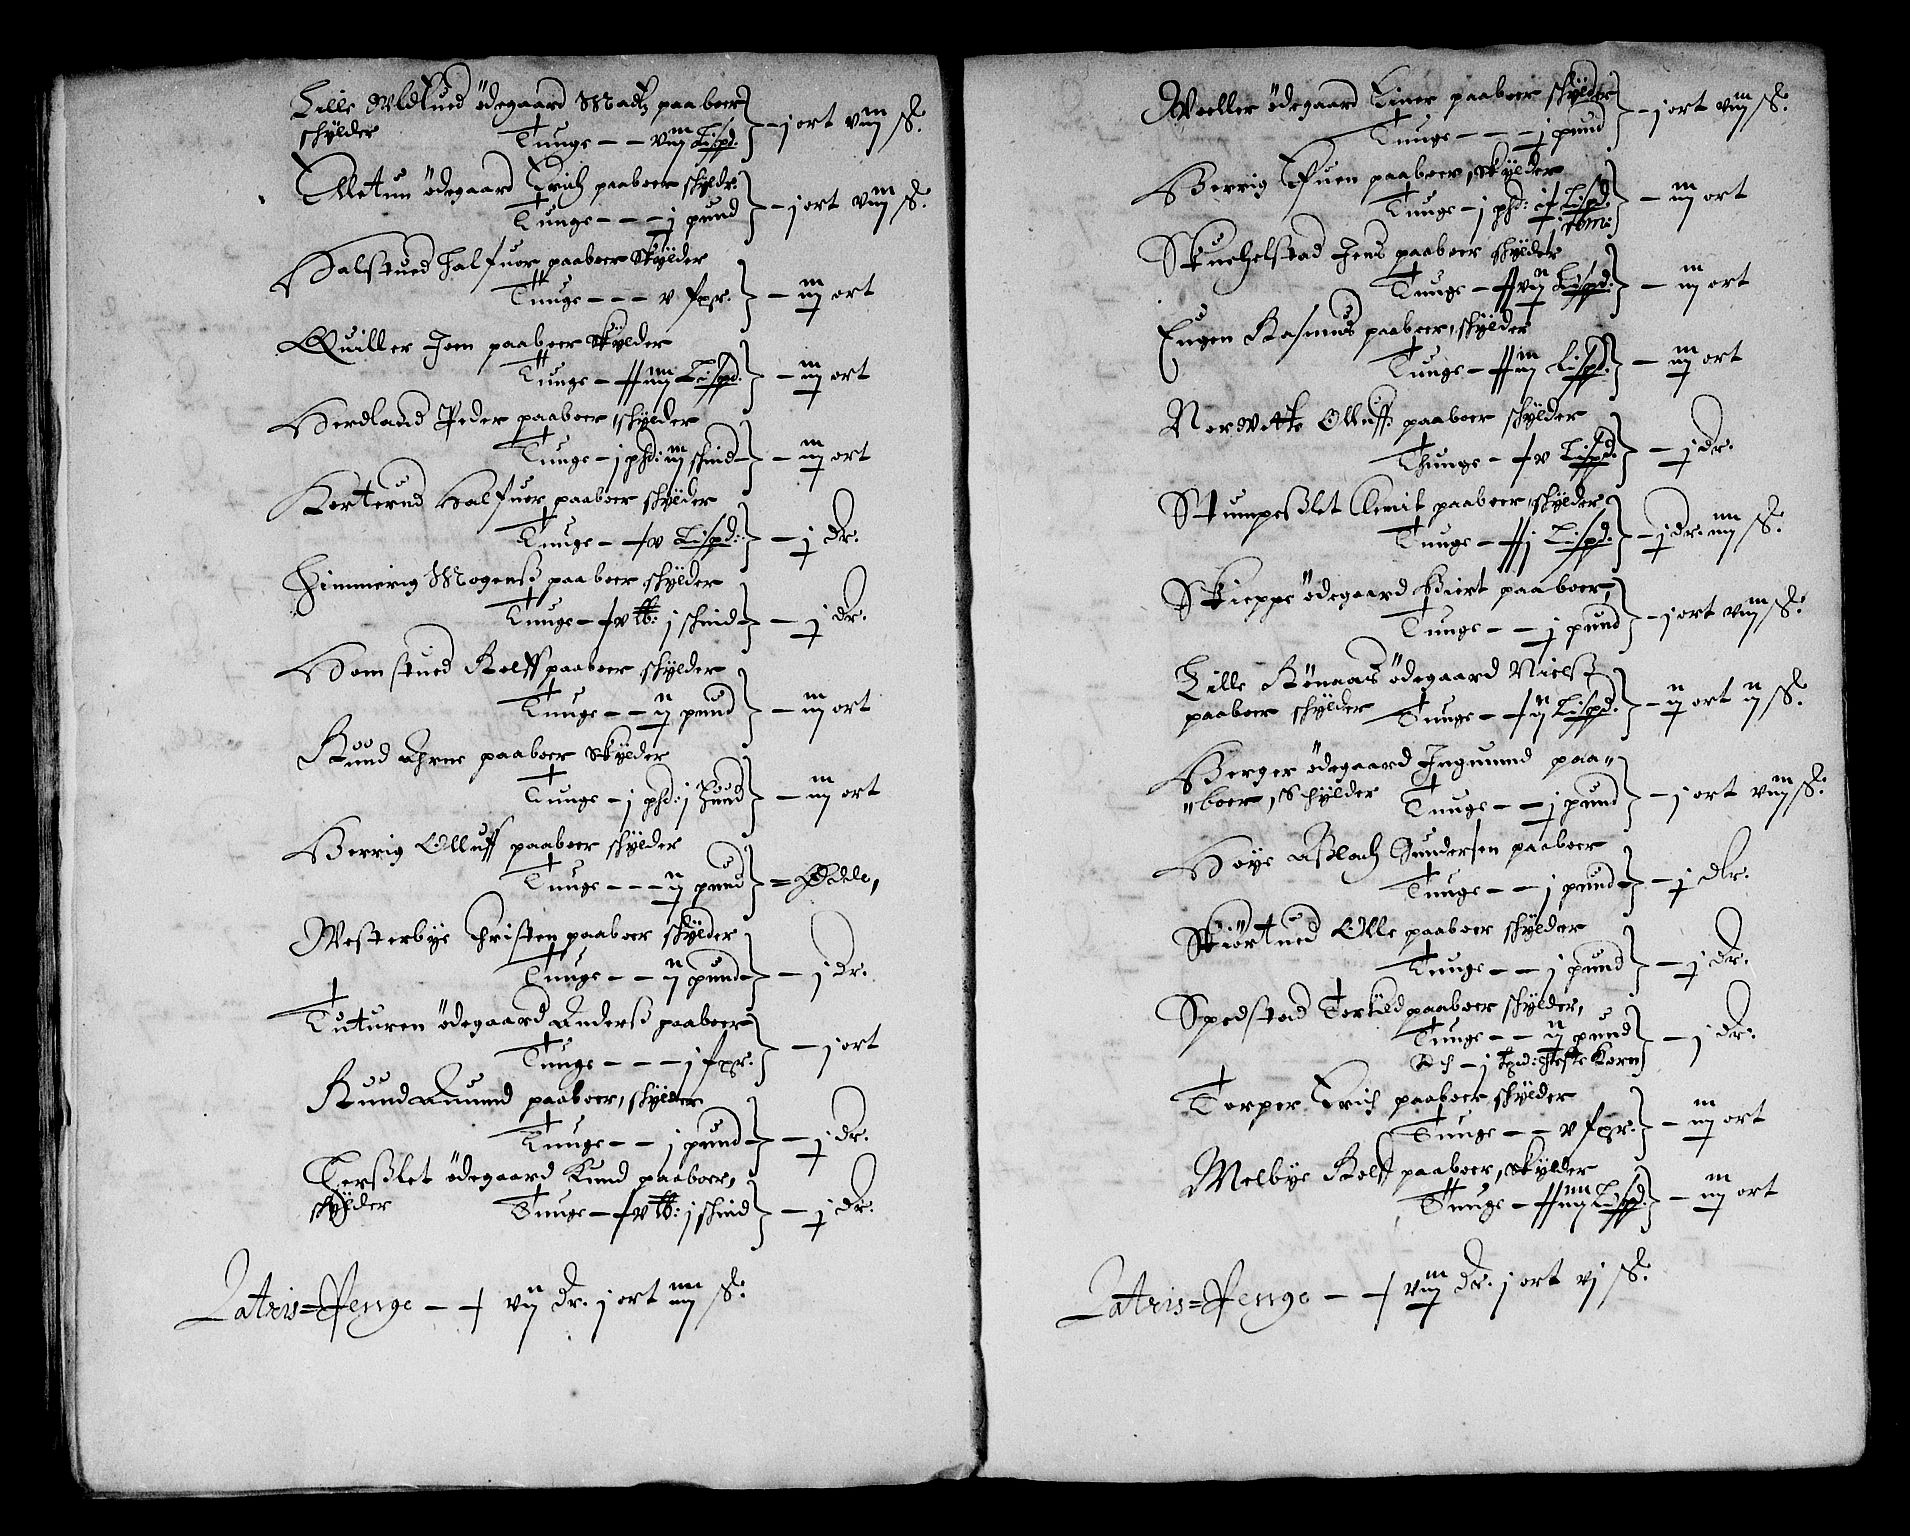 Lille Oldtued ödegaard Madtz paaboer
skylder
Tunge – – viij Lispd. – j ort viij s.
Elletun ödegaard Erich paaboer skyldr.
Tunge – – – j pund – j ort viij s.
Halstued Halfuor paaboer Skylder
Tunge – – – v fpr. – iij ort
Quiller Joen paaboer Skylder
Tunge – iiij Lispd. – iij ort
Herdland Peder paaboer, skylder
Tunge – j phd: iij skind – iij ort
Korterud Halfuor paaboer skylder
Tunge – v Lispd: – j dr.
Himmerig Mogenß paaboer skylder
Tunge – v ℔: j skind – j dr.
Homstued Rolff paaboer skylder
Tunge – – ij pund – iij ort
Rund Arne paaboer skylder
Tunge – j phd: j Hud – iij ort
Berrig Olluff paaboer skylder
Tunge – – – ij pund = Ödde,
Westerbye Christen paaboer skylder
Tunge – – ij pund – j dr.
Tuturen ödegaard Anderß paaboer
Tunge – – – j fpr. – j ort
Rund Amund paaboer, skylder
Tunge – – j pund – j dr.
Terßlet ödegaard Knud paaboer,
skylder Tunge – v ℔: j skind – j dr.
Latris = Penge – vij dr. j ort iiij s.
Woller ödegaard Einer paaboer skylder
Tunge – – – j pund – j ort viij s.
Berrig Efuen paaboer, Skylder
Tunge – j phd: Lispd. – iij ort
Skuchelstad Jens paaboer skylder
Tunge – vij Lispd. – iij ort
Engen Rasmus paaboer, skylder
Tunge – iij Lispd. – iij ort
Nordvette Olluff paaboer skylder
Thunge – v Lispd. – j dr.
Stumpeßlet Clemit paaboer, skylder
Tunge – j Lispd. – j dr. iiij s.
Skieppe ödegaard Biert paaboer,
Tunge – – j pund – j ort viij s.
Lille Rönaas ödegaard Nielß
paaboer skylder Tunge – ij Lispd. – ij ort ij s.
Berger ödegaard Ingmund paa„
„boer, Schylder Tunge – – j pund – j ort viij s.
Höye Aßlach Gundersen paaboer
Tunge – – j pund – j dlr.
Skiörtued Olle paaboer skylder
Tunge – – j pund – j dr.
Spedstad Torkild paaboer skylder,
Tunge – – ij pund – j dr:
Och – j Heste Korn
Torper Erich paaboer skylder
Tunge – – v fpr. – iij ort
Melbye Rolf paaboer, skylder
Tunge – iiij Lispd. – iij ort
Latris = Penge – viij dr. j ort vj s.